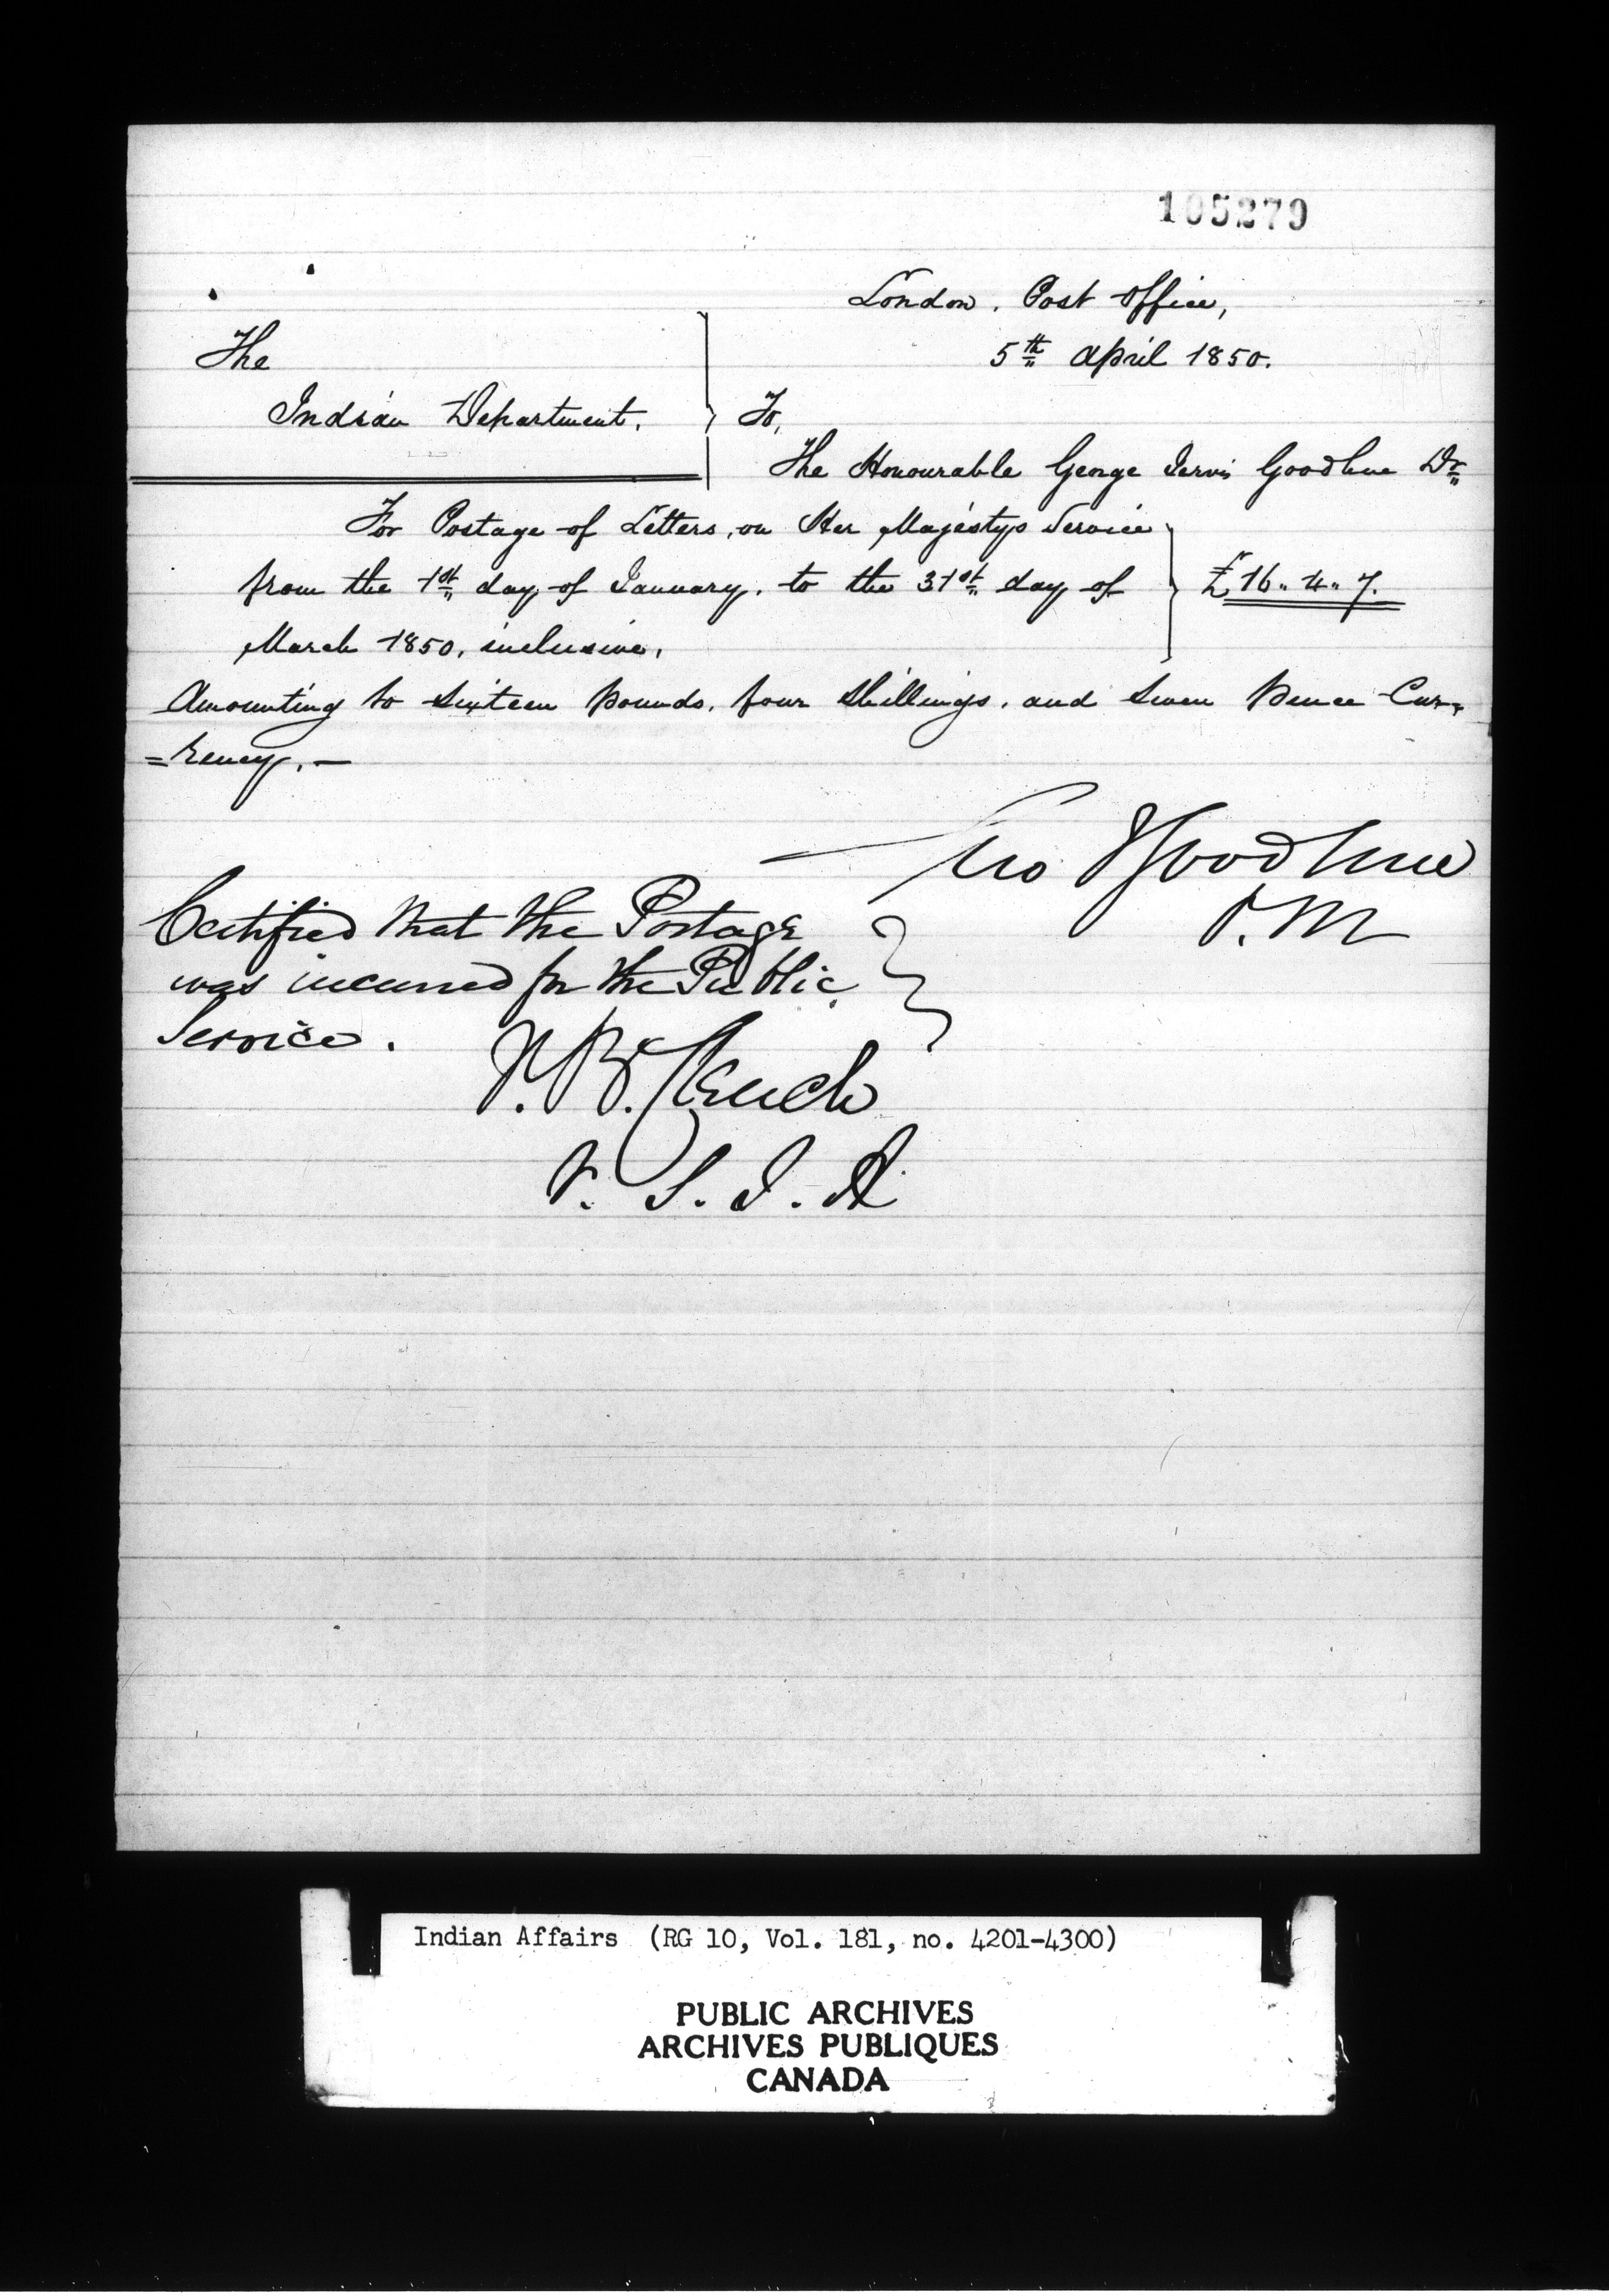 105279
London, Post Office,
5th April 1850.
The
Indian Department.
To,
The Honourable George Jervis Goodhue Dr
For Postage of Letters, on Her Majestys Service
from the 1st day of January, to the 31st day of
March 1850, inclusive,
£16.. 4.. 7.
Amounting to Sixteen pounds, four Shillings, and Seven pence Cur=
=rency. —
Geo J Goodhue
P.M
Certified that the Postage
was incurred for the Public
Service.
J. B. Clench
V. S. I. A
Indian Affairs (RG 10, Vol. 181, no. 4201-4300)
PUBLIC ARCHIVES
ARCHIVES PUBLIQUES
CANADA